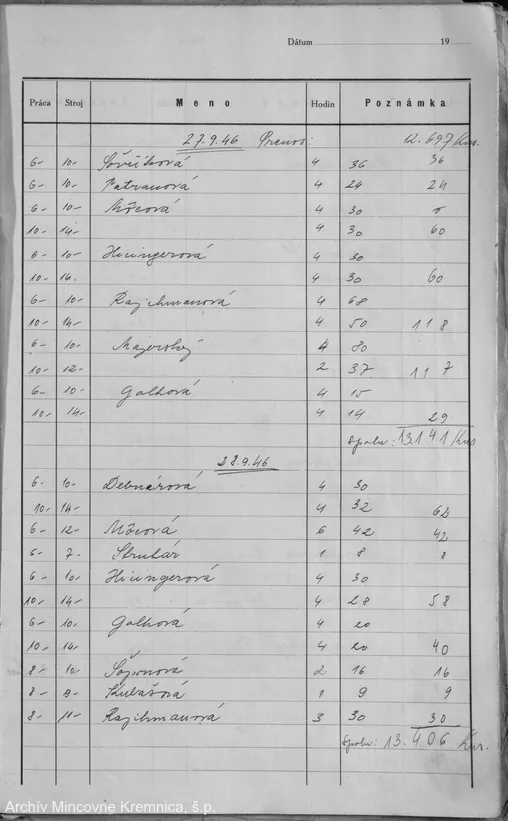 Dátum 19
Práca Stroj Meno Hodín Poznámka
27.9.46 Prenos: 12.697 Kus.
6- 10- Ševčíková 4 36 36
6- 10- Patranová 4 24 24
6- 10- Môcová 4 30
10- 14- 4 30 60
6- 10- Hisingerová 4 30
10- 14. 4 30 60
6- 10- Rajchmanová 4 68
10- 14- 4 50 118
6- 10- Majerský 4 80
10- 12- 2 37 117
6- 10- Galková 4 15
10- 14- 4 14 29
Spolu: 13.141 Kus
28.9.46
6- 10- Debnárová 4 30
10- 14- 4 32 62
6- 12- Môcová 6 42 42
6- 7- Strelár 1 8 8
6- 10- Hisingerová 4 30
10- 14- 4 28 58
6- 10- Galková 4 20
10- 14- 4 20 40
8- 10- 2 16 16
8- 9- Kubašná 1 9 9
8- 11- Rajchmanová 3 30 30
Spolu: 13.406 Kus.
Archív Mincovne Kremnica, š.p.